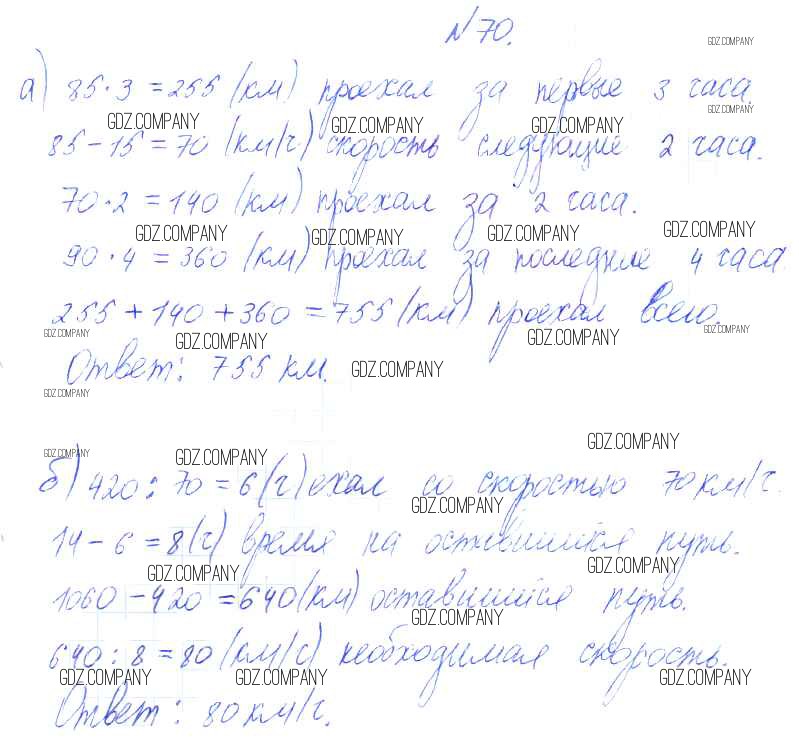 № 70.
GDZ.COMPANY
а) 85·3 = 255 (км) проехал за первые 3 часа.
GDZ.COMPANY GDZ.COMPANY GDZ.COMPANY GDZ.COMPANY
85 - 15 = 70 (км/ч) скорость следующие 2 часа.
70·2 = 140 (км) проехал за 2 часа.
GDZ.COMPANY GDZ.COMPANY GDZ.COMPANY GDZ.COMPANY
90·4 = 360 (км) проехал за последние 4 часа.
255 + 140 + 360 = 755 (км) проехал всего.
GDZ.COMPANY GDZ.COMPANY GDZ.COMPANY GDZ.COMPANY
Ответ: 755 км.
GDZ.COMPANY
GDZ.COMPANY
GDZ.COMPANY
GDZ.COMPANY GDZ.COMPANY
б) 420 : 70 = 6 (ч) ехал со скоростью 70 км/ч.
GDZ.COMPANY
14 - 6 = 8 (ч) время на оставшийся путь.
GDZ.COMPANY GDZ.COMPANY
1060 - 420 = 640 (км) оставшийся путь.
GDZ.COMPANY
640 : 8 = 80 (км/с) необходимая скорость.
GDZ.COMPANY GDZ.COMPANY GDZ.COMPANY GDZ.COMPANY
Ответ: 80 км/ч.